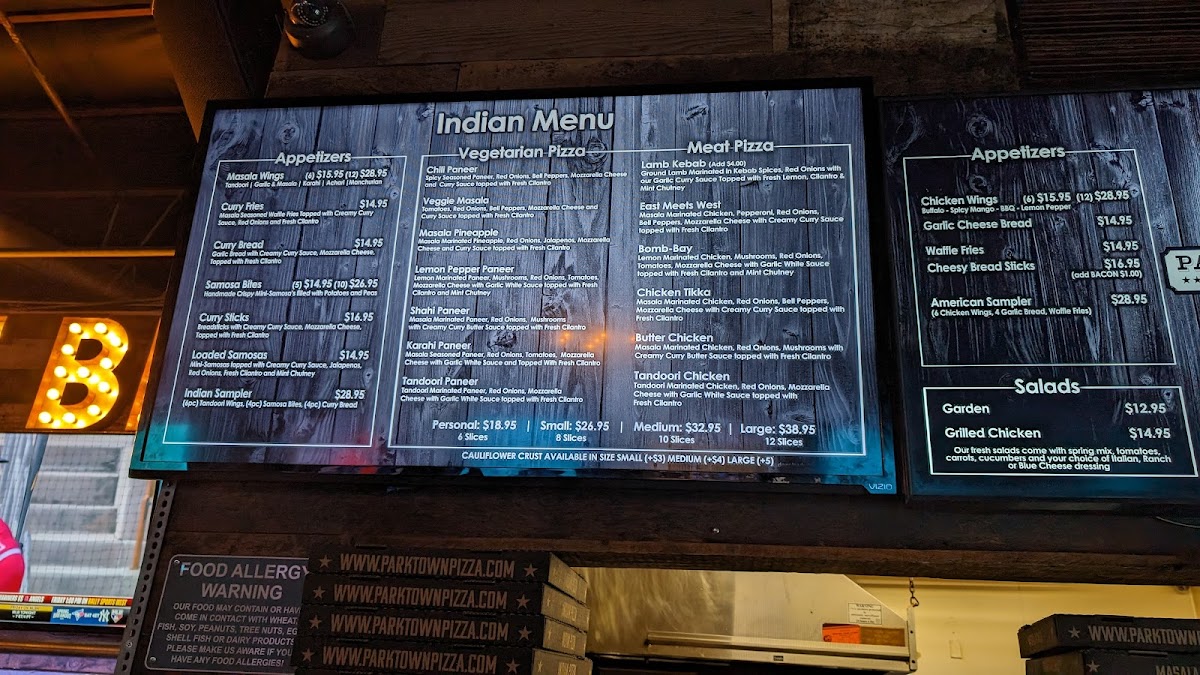 Indian Menu
Appetizers
Masala Wings (6) $15.95 (12) $28.95
Tandoori | Garlic & Masala | Karahi | Achari | Manchurian
Curry Fries $14.95
Masala Seasoned Waffle Fries topped with Creamy Curry
Sauce, Red Onions and Fresh Cilantro
Curry Bread $14.95
Garlic Bread with Creamy Curry Sauce, Mozzarella Cheese,
Topped with Fresh Cilantro
Samosa Bites (5) $14.95 (10) $26.95
Handmade Crispy Mini-Samosa's filled with Potatoes and Peas
Curry Sticks $16.95
Breadsticks with Creamy Curry Sauce, Mozzarella Cheese,
Topped with Fresh Cilantro
Loaded Samosas $14.95
Mini-Samosas topped with Creamy Curry Sauce, Jalapenos,
Red Onions, Fresh Cilantro and Mint Chutney
Indian Sampler $28.95
(4pc) Tandoori Wings, (4pc) Samosa Bites, (4pc) Curry Bread
Vegetarian Pizza
Chili Paneer
Spicy Seasoned Paneer, Red Onions, Bell Peppers, Mozzarella Cheese
and Curry Sauce topped with Fresh Cilantro
Veggie Masala
Tomatoes, Red Onions, Bell Peppers, Mozzarella Cheese and
Curry Sauce topped with Fresh Cilantro
Masala Pineapple
Masala Marinated Pineapple, Red Onions, Jalapenos, Mozzarella
Cheese and Curry Sauce topped with Fresh Cilantro
Lemon Pepper Paneer
Lemon Marinated Paneer, Mushrooms, Red Onions, Tomatoes,
Mozzarella Cheese with Garlic White Sauce topped with Fresh
Cilantro and Mint Chutney
Shahi Paneer
Masala Marinated Paneer, Red Onions, Mushrooms
with Creamy Curry Butter Sauce topped with Fresh Cilantro
Karahi Paneer
Masala Seasoned Paneer, Red Onions, Tomatoes, Mozzarella
Cheese with Garlic White Sauce and Topped With Fresh Cilantro
Tandoori Paneer
Tandoori Marinated Paneer, Red Onions, Mozzarella
Cheese with Garlic White Sauce topped with Fresh Cilantro
Meat Pizza
Lamb Kebab (Add $4.00)
Ground Lamb Marinated in Kebab Spices, Red Onions with
our Garlic Curry Sauce Topped with Fresh Lemon, Cilantro &
Mint Chutney
East Meets West
Masala Marinated Chicken, Pepperoni, Red Onions,
Bell Peppers, Mozzarella Cheese with Creamy Curry Sauce
topped with Fresh Cilantro
Bomb-Bay
Lemon Marinated Chicken, Mushrooms, Red Onions,
Tomatoes, Mozzarella Cheese with Garlic White Sauce
topped with Fresh Cilantro and Mint Chutney
Chicken Tikka
Masala Marinated Chicken, Red Onions, Bell Peppers,
Mozzarella Cheese with Creamy Curry Sauce topped with
Fresh Cilantro
Butter Chicken
Masala Marinated Chicken, Red Onions, Mushrooms with
Creamy Curry Butter Sauce topped with Fresh Cilantro
Tandoori Chicken
Tandoori Marinated Chicken, Red Onions, Mozzarella
Cheese with Garlic White Sauce topped with
Fresh Cilantro
Personal: $18.95 | Small: $26.95 | Medium: $32.95 | Large: $38.95
6 Slices 8 Slices 10 Slices 12 Slices
CAULIFLOWER CRUST AVAILABLE IN SIZE SMALL (+$3) MEDIUM (+$4) LARGE (+5)
VIZIO
Appetizers
Chicken Wings (6) $15.95 (12) $28.95
Buffalo - Spicy Mango - BBQ - Lemon Pepper
Garlic Cheese Bread $14.95
Waffle Fries $14.95
Cheesy Bread Sticks $16.95
(add BACON $1.00)
American Sampler $28.95
(6 Chicken Wings, 4 Garlic Bread, Waffle Fries)
PA
Salads
Garden $12.95
Grilled Chicken $14.95
Our fresh salads come with spring mix, tomatoes,
carrots, cucumbers and your choice of Italian, Ranch
or Blue Cheese dressing
B
FOOD ALLERGY
WARNING
OUR FOOD MAY CONTAIN OR HAV
COME IN CONTACT WITH WHEAT,
FISH, SOY, PEANUTS, TREE NUTS, EG
SHELL FISH OR DAIRY PRODUCTS
PLEASE MAKE US AWARE IF YOU
HAVE ANY FOOD ALLERGIES!
WWW.PARKTOWNPIZZA.COM
WWW.PARKTOWNPIZZA.COM
WWW.PARKTOWNPIZZA.COM
WWW.PARKTOWNPIZZA.COM
WWW.PARKTOWNPIZZA
MASALA